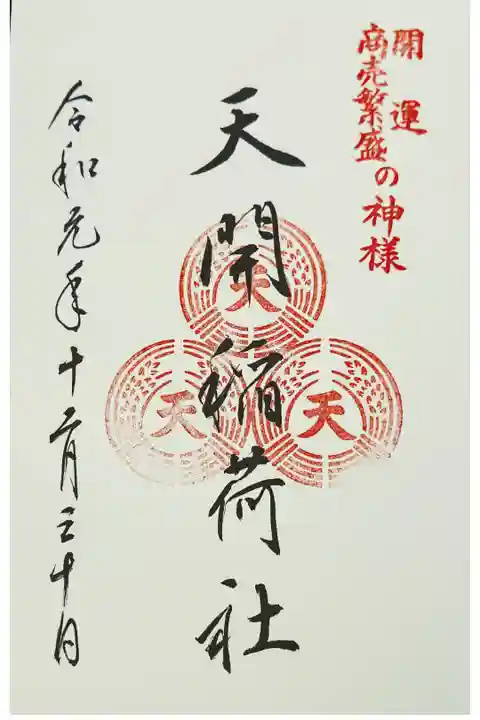 開運
商売繁盛の神様
天
天開稲荷社
天
天
令和元年十二月三十日